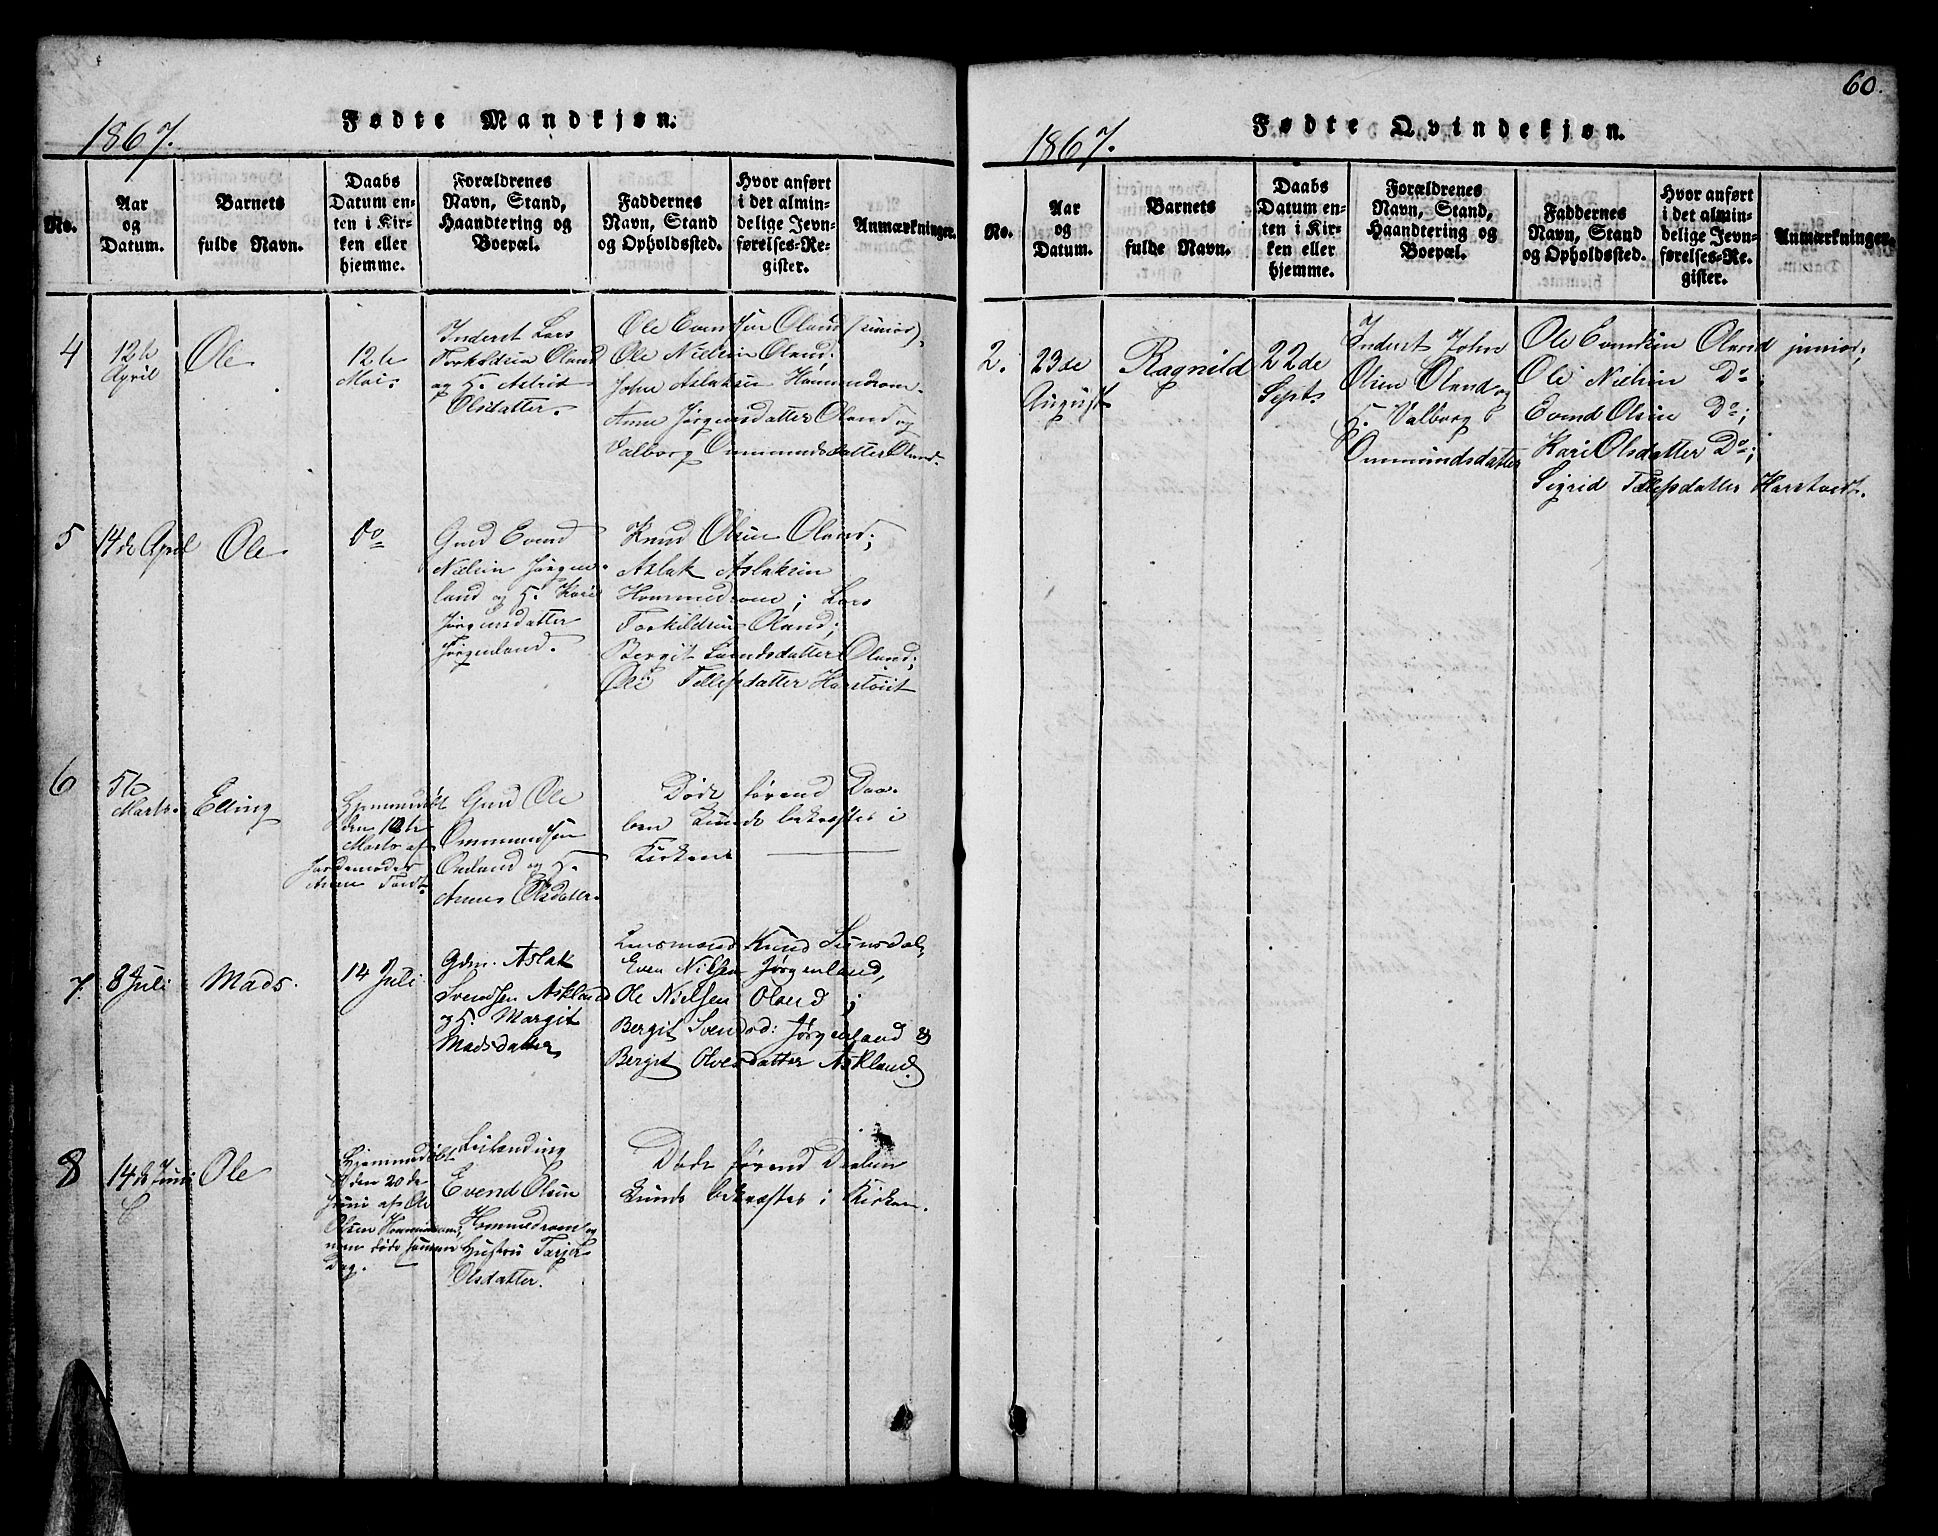 1867. Fødte Mandkjøn.
No.
Aar
og
Datum.
Barnets
fulde Navn.
Daabs
Datum en-
ten i Kir-
ken eller
hjemme.
Forældrenes
Navn, Stand,
Haandtering og
Boepæl.
Faddernes
Navn, Stand
og Opholdssted.
Hvor anført
i det almin-
delige Jevn-
førelses-Re-
gister.
Anmærkninger.
4
12te
April
Ole
12te
Mai
Inderst Lars
Torkildsen Oland
og H. Astrid
Olsdatter.
Ole Evendsen Oland (junior),
Ole Nielsen Oland.
John Aslaksen Hommedrom.
Anne Jørgensdatter Oland og
Valborg Ommundsdatter Oland.
5
14de April
Ole
Do
Gmd Evend
Nielsen Jørgen-
land og H. Kari
Jørgensdatter
Jørgenland.
Knud Olsen Oland;
Aslak Aslaksen
Hommedrom; Lars
Torkildsen Oland;
Bergit Svendsdatter Oland;
Tellefsdatter Harstveit
6
5te
Marts.
Elling
Hjemmedøbt
den 10te
Marts af
Jordemoder
Anne
Gmd Ole
Ommundsen
Oveland og H.
Anne Olsdatter
Døde førend Daa-
ben kunde bekræftes i
Kirken
7.
8 Juli
Mads.
14 Juli
Gdm. Aslak
Svendsen Askland
og H. Margit
Madsdatter
Lensmand Knud Sunsdal,
Even Nilsen Jørgenland,
Ole Nielsen Oland;
Bergit Svendsd: Jørgenland &
Bergit Olvesdatter Askland.
8
14de Juni
Ole
Hjemmedøbt
den 20de
Juni af Ole
Olsen Hommedrom,
men døde samme
Dag.
Leilænding
Evend Olsen
Hommedrom og
Hustru Tarjer
Olsdatter.
Døde førend Daaben
kunde bekræftes i Kirken.
60.
1867. Fødte Qvindekjøn.
No.
Aar
og
Datum.
Barnets
fulde Navn.
Daabs
Datum en-
ten i Kir-
ken eller
hjemme.
Forældrenes
Navn, Stand,
Haandtering og
Boepæl.
Faddernes
Navn, Stand
og Opholdssted.
Hvor anført
i det almin-
delige Jevn-
førelses-Re-
gister.
Anmærkninger.
2.
23de
August
Ragnild
22de
Sept.
Inderst John
Olsen Oland og
H. Valborg
Ommundsdatter
Ole Evendsen Oland junior;
Ole Nielsen Do;
Evend Olsen Do;
Kari Olsdatter Do;
Sigrid Tellefsdatter Harstveit.